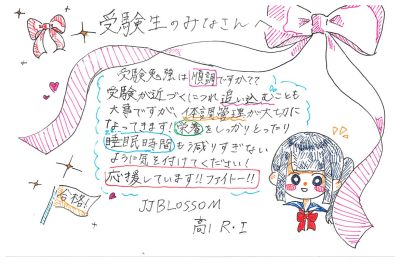 受験生のみなさんへ
受験勉強は順調ですかて?
受験が近づくにつれ追い込むことも
大事ですが、体調管理が大切に
なってきます!栄養をしっかりとったり
睡眠時間も減りすぎない
ように気を付けてください!
応援しています!!ファイトー!!
JJBLOSSOM
高1 R・I
合格!